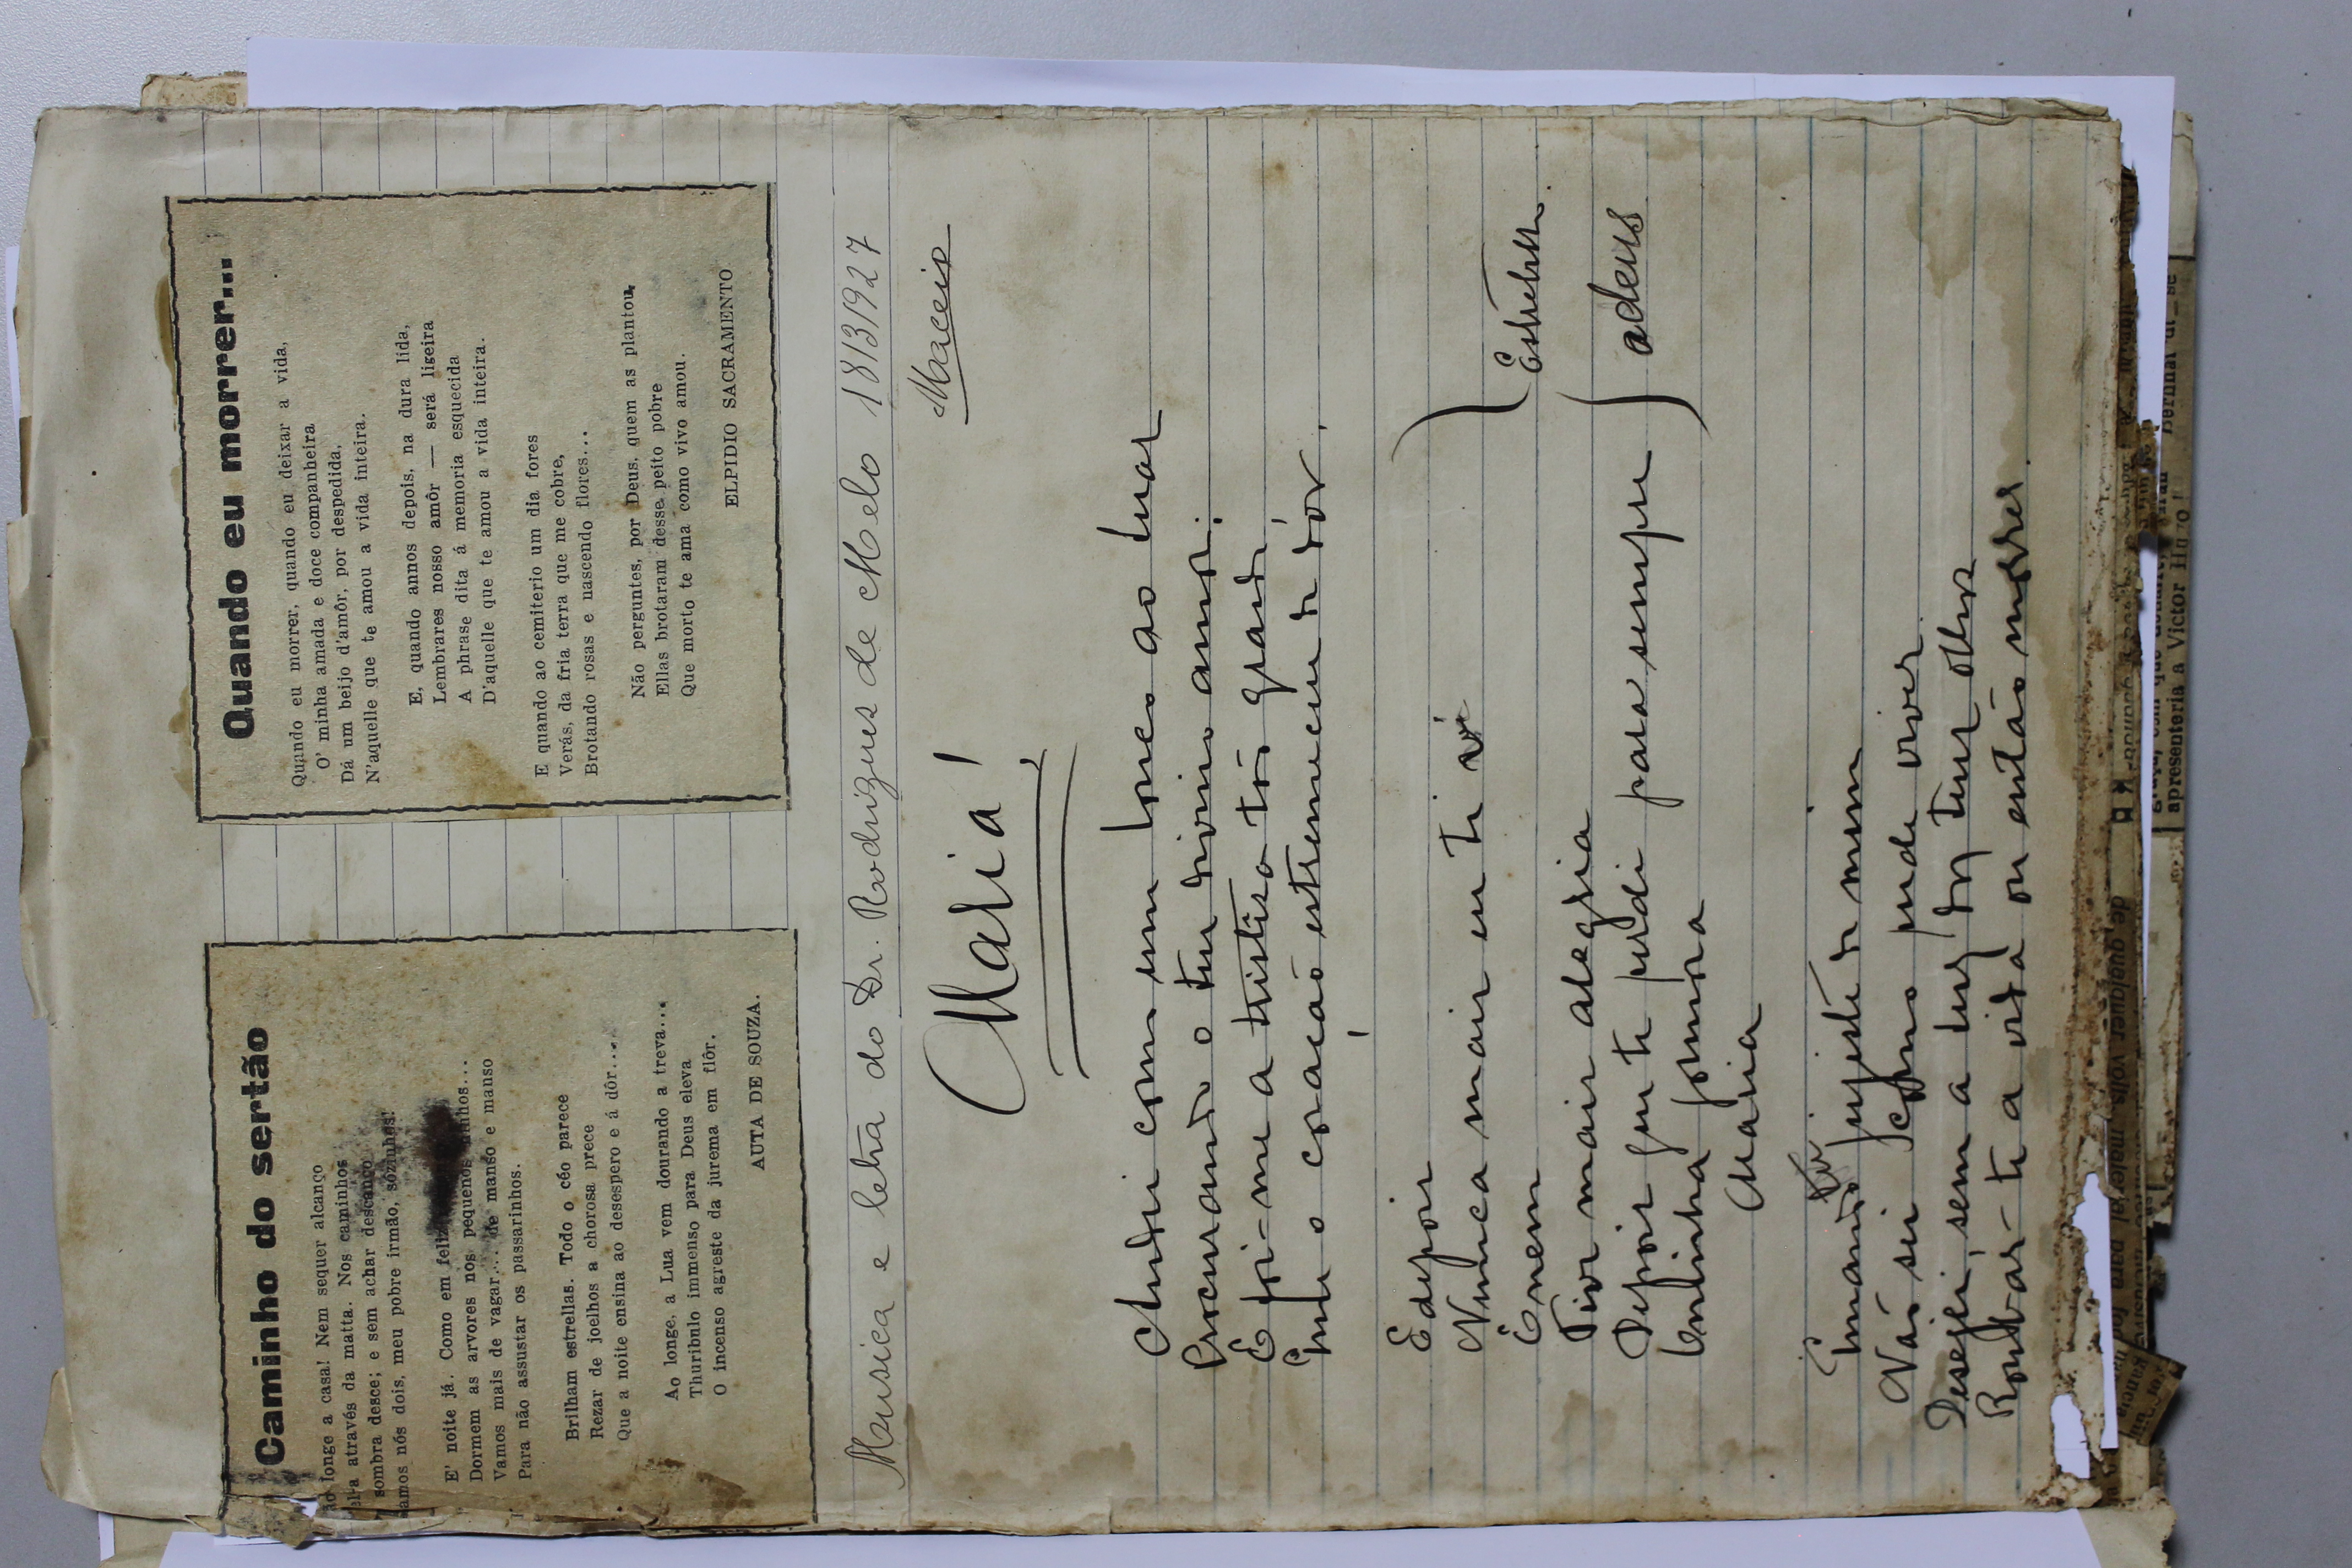 Caminho do sertão
ão longe a casa! Nem sequer alcanço
el-a através da matta. Nos caminhos
sombra desce; e sem achar descanço
amos nós dois, meu pobre irmão, sózinhos!
E' noite já. Como em feliz
Dormem as arvores nos pequenos ninhos...
Vamos mais de vagar... de manso e manso
Para não assustar os passarinhos.
Brilham estrellas. Todo o céo parece
Rezar de joelhos a chorosa prece
Que a noite ensina ao desespero e á dôr....
Ao longe, a Lua vem dourando a treva...
Thuribulo immenso para Deus eleva
O incenso agreste da jurema em flôr.
AUTA DE SOUZA.
Quando eu morrer...
Quando eu morrer, quando eu deixar a vida,
O' minha amada e doce companheira
Dá um beijo d'amôr, por despedida,
N'aquelle que te amou a vida inteira.
E, quando annos depois, na dura lida,
Lembrares nosso amôr — será ligeira
A phrase dita á memoria esquecida
D'aquelle que te amou a vida inteira.
E quando ao cemiterio um dia fores
Verás, da fria terra que me cobre,
Brotando rosas e nascendo flores...
Não perguntes, por Deus, quem as plantou,
Ellas brotaram desse peito pobre
Que morto te ama como vivo amou.
ELPIDIO SACRAMENTO
Musica e letra do Dr. Rodrigues de Melo 18/3/927
Maceio
Maria!
Andei como um louco ao luar
Procurando o teu divino amor;
E foi-me a tristesa tão grande
Que o coração estremeceu de dôr.
E depois
Nunca mais eu te vi
E nem
Tive mais alegria
Depois que te perdi para sempre adeus
Lindinha formosa
Maria
Estribilho.
Quando fugiste de mim
Não sei como pude viver
Desejei, sem a luz dos teus olhos
Roubar-te a vida ou então morrer.
apresenteria a Victor Hugo